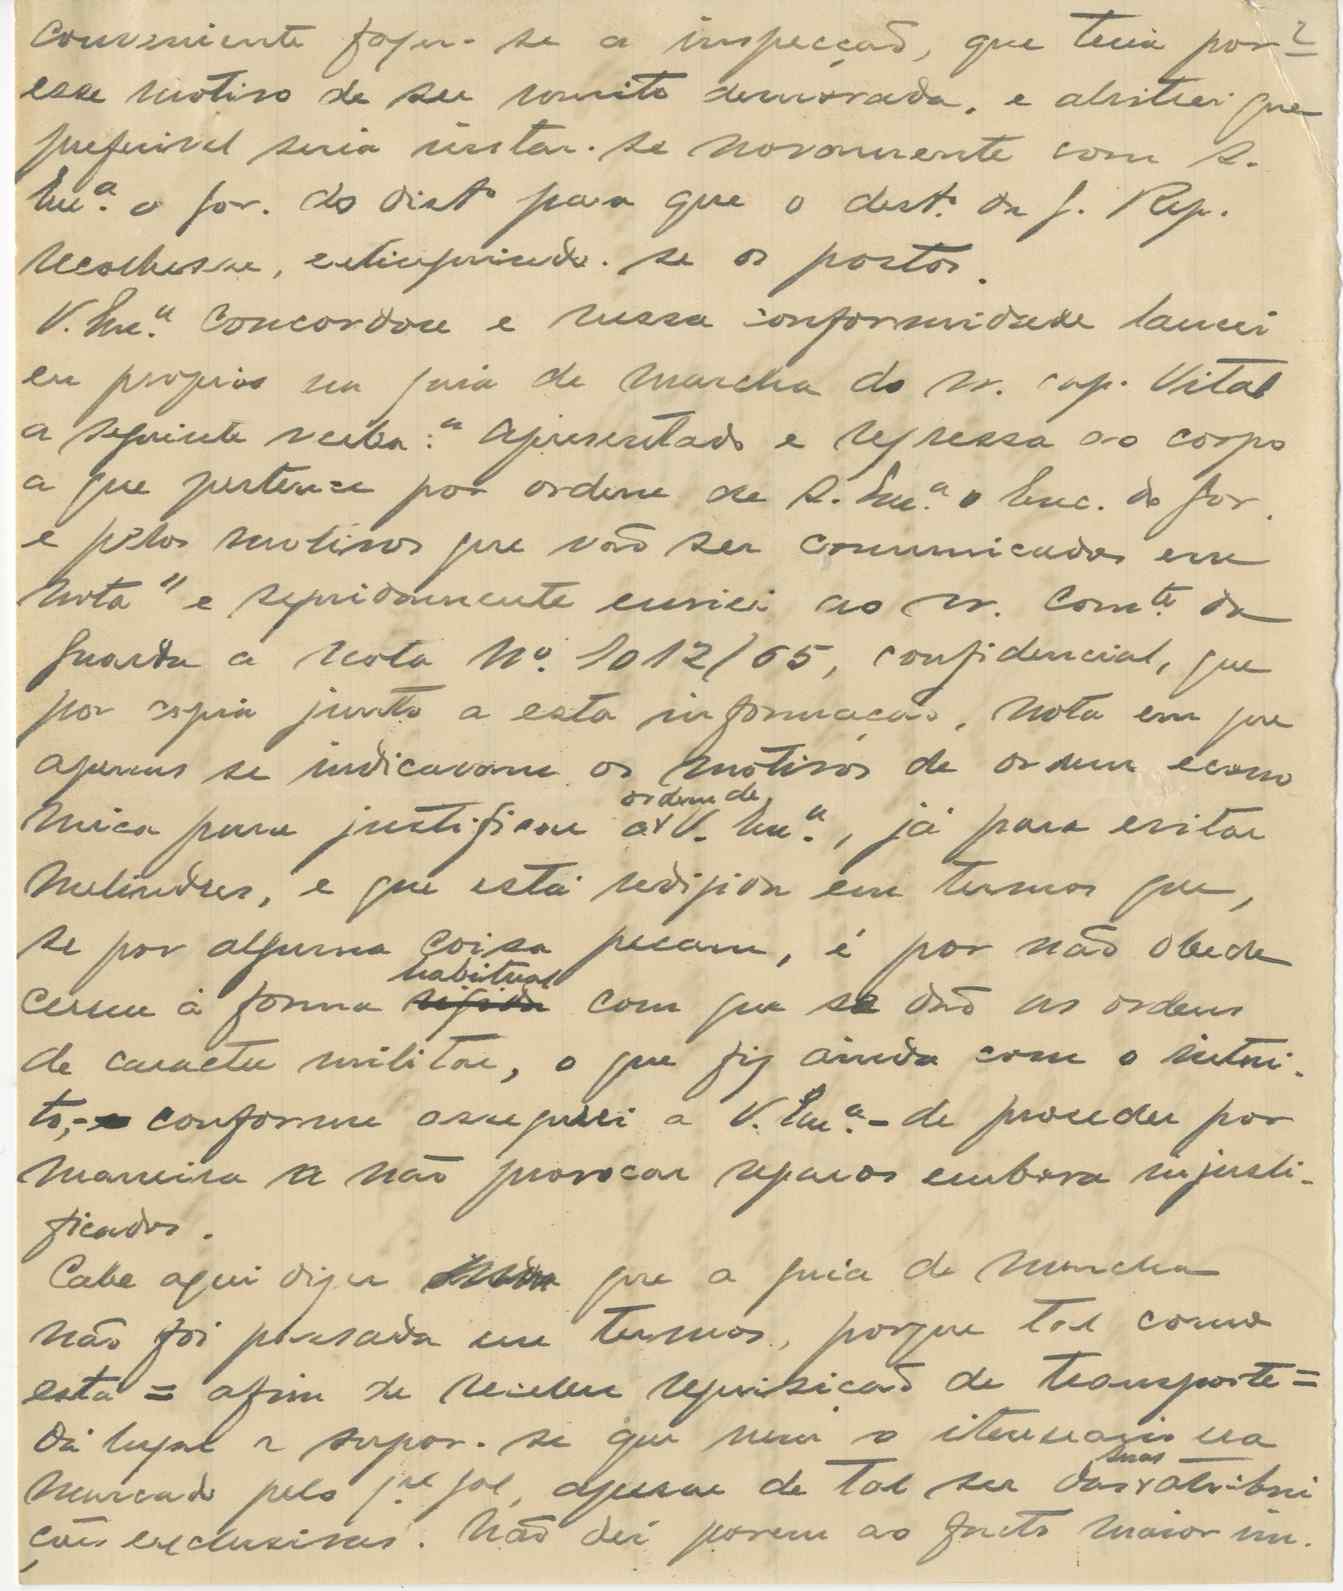 conveniente fazer-se a inspecção, que teria por 2
esse motivo de ser muito demorada, e alvitrei que
preferivel seria instar-se novamente com S.
Ex.ª o Gov. do Distº para que o destº da G. Rep.
recolhesse, extinguindo-se os postos.
V. Ex.ª concordou e nessa conformidade lancei
eu proprio na guia de marcha do sr. cap. Vital
a seguinte verba: "Apresentado e regressa ao corpo
a que pertence por ordem de S. Ex.ª o Enc. do Gov.
e pelos motivos que vão ser comunicados em
nota" e seguidamente enviei ao sr. Comte. da
Guarda a nota Nº. 1012/65, confidencial, que
por copia junto a esta informação, nota em que
apenas se indicavam os motivos de ordem econo
mica para justificar a ordem de V. Ex.ª, já para evitar
melindres, e que está redigida em termos que,
se por alguma coisa pecam, é por não obede
cerem á forma habitual rigida com que se dão as ordens
de caracter militar, o que fiz ainda com o intui-
to, - conforme assegurei a V. Ex.ª - de proceder por
maneira a não provocar reparos embora injusti-
ficados.
Cabe aqui dizer que a guia de marcha
não foi passada em termos, porque tal como
está = afim de receber requisicão de transporte =
dá lugar a supor-se que viria o itenerario na
marcado pelo Qel Gal, apesar de tal ser das suas atribui
ções exclusivas. Não dei porem ao facto maior im-